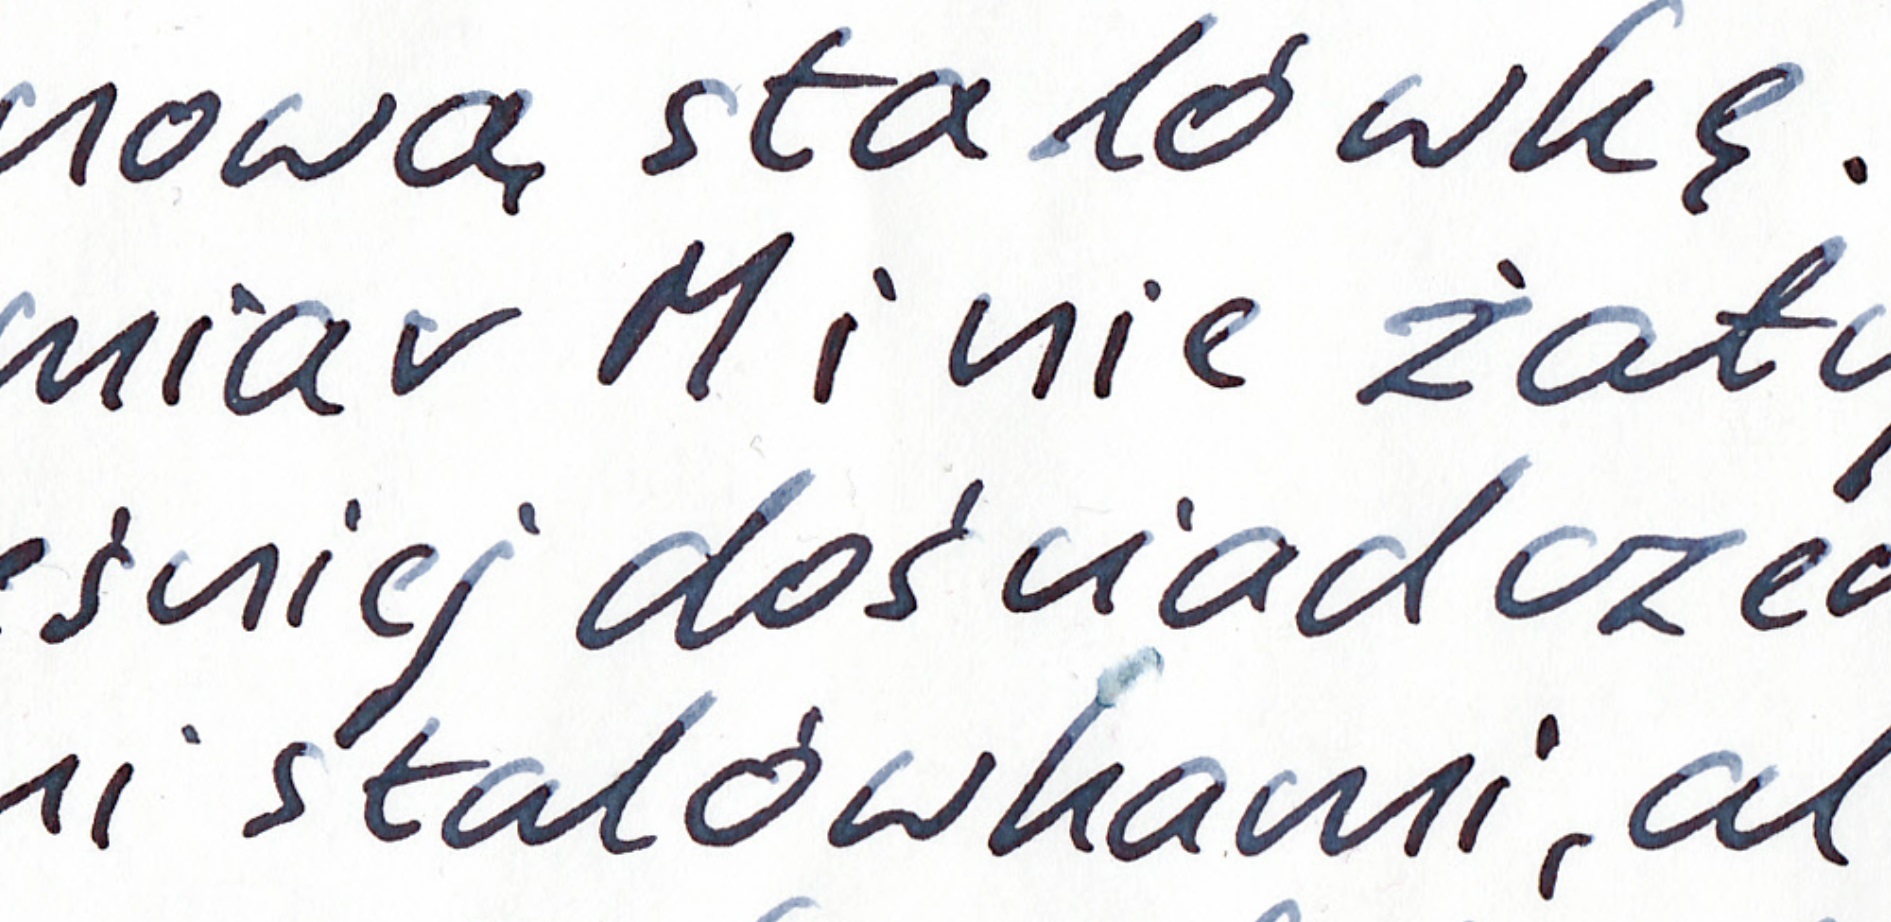 nową stalówkę.
miar M i nie żały
eśniej doświadczeo
ni stalówkami, al